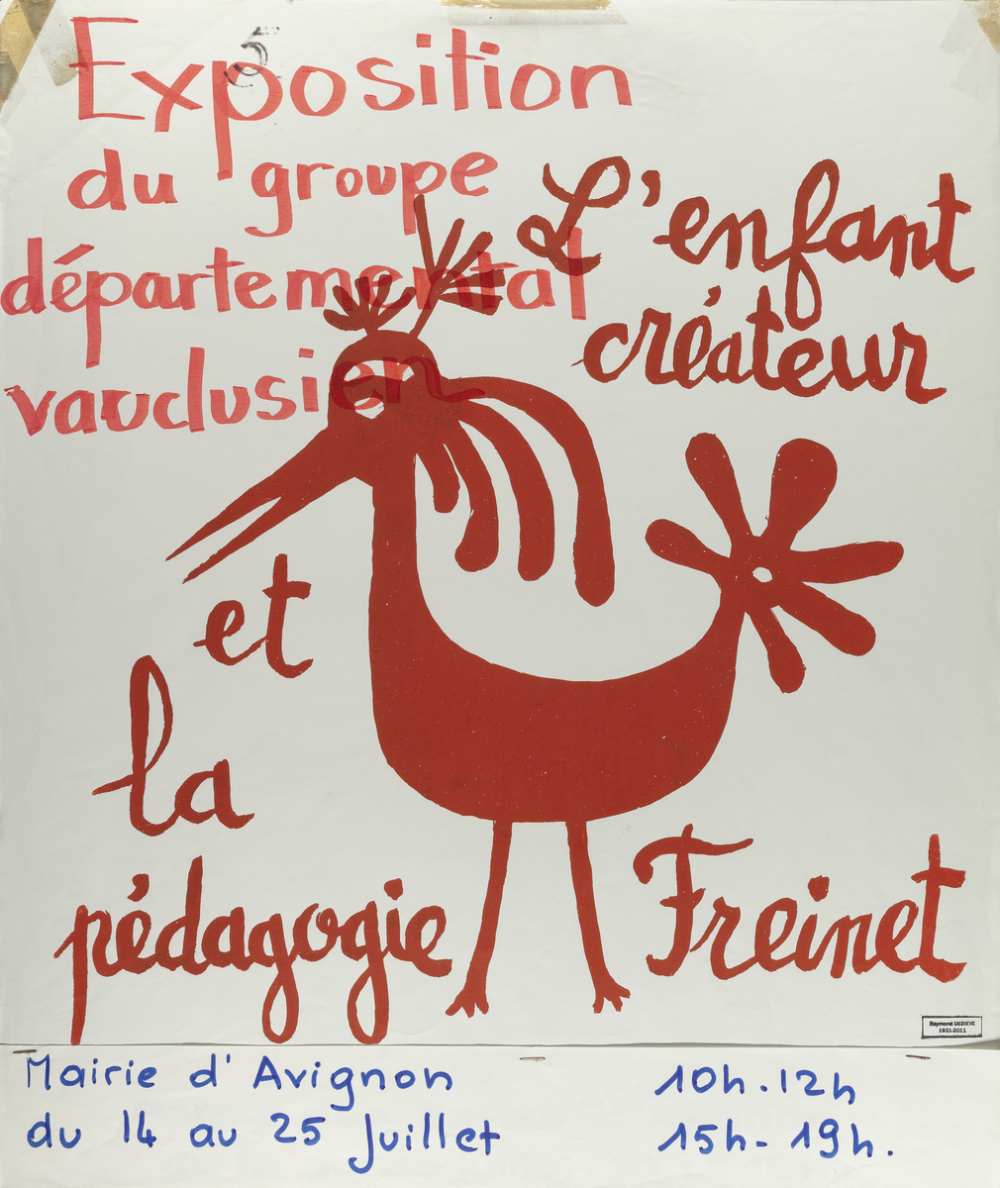 Exposition
du groupe
départemental
vauclusien
5
L'enfant
créateur
et
la
pédagogie Freinet
Raymond DEBIEVE
1931-2011
Mairie d'Avignon 10h.12h
du 14 au 25 Juillet 15h-19h.